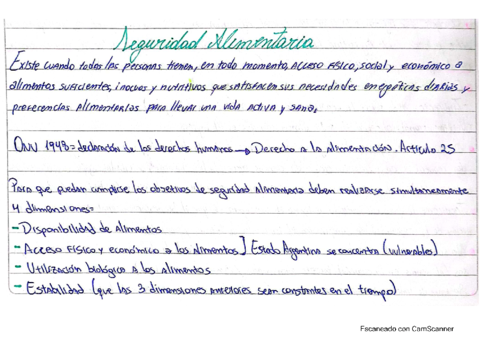 Seguridad Alimentaria
Existe cuando todas las personas tienen, en todo momento, acceso físico, social y económico a
alimentos suficientes, inocuos y nutritivos que satisfacen sus necesidades energéticas diarias y
preferencias alimentarias para llevar una vida activa y sana.
ONU 1948= declaración de los derechos humanos → Derecho a la alimentación. Artículo 25
Para que puedan cumplirse los objetivos de seguridad alimentaria deben realizarse simultaneamente
4 dimensiones=
- Disponibilidad de Alimentos
- Acceso físico y económico a los Alimentos] Estado Argentino se concentra (vulnerables)
- Utilización biológica a los alimentos
- Estabilidad (que las 3 dimensiones anteriores sean constantes en el tiempo)
Escaneado con CamScanner